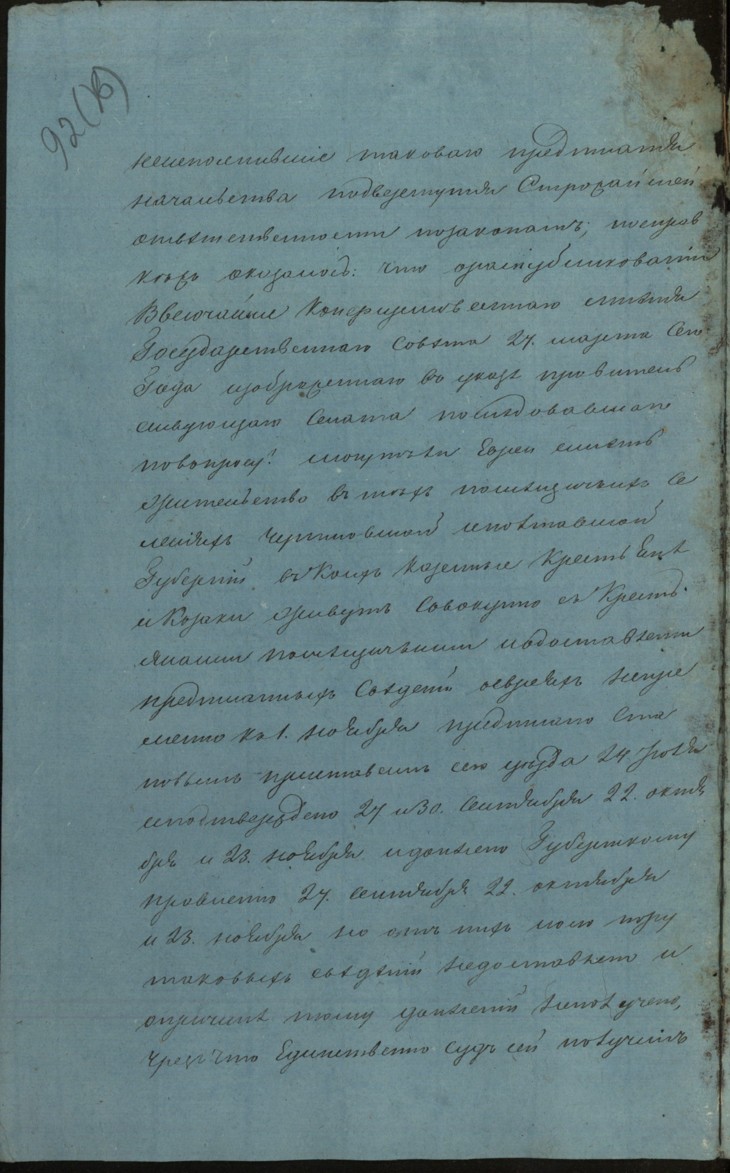 92(Б)
неисполнившiе таковаго предписанiя
начальства подвергнутся Строжайшей
отвѣтственности позаконамъ; посправ
кѣже оказалось: что ораспубликованiи
Высочайше Конфирмованнаго мнѣнiя
Государственнаго Совѣта 27. марта Сего
Года изображеннаго въ указѣ правитель
ствующаго Сената последовавшаго
повопросу: могутъли Евреи иметь
жительство въ техъ помещичьихъ се
ленiяхъ Черниговской иполтавской
Губернiй въ Коихъ Казенные Крестьяне
и Козаки живутъ Совокупно съ Кресть
янами помещичьими идоставленiи
предписанныхъ Сведенiй оевреяхъ непре
менно къ 1. ноября предписано Ста
новымъ приставамъ сего уѣзда 24 Iюля
иподтверждено 27 и 30. Сентября 22. октя
бря и 23. ноября идонесено Губернскому
правленiю 27. сентября 22. октября
и 23. ноября но отъ нихъ посю пору
таковыхъ сведенiй недоставлено и
опричине тому донесенiй неполучено,
чрезъ что Единственно Судъ сей получилъ